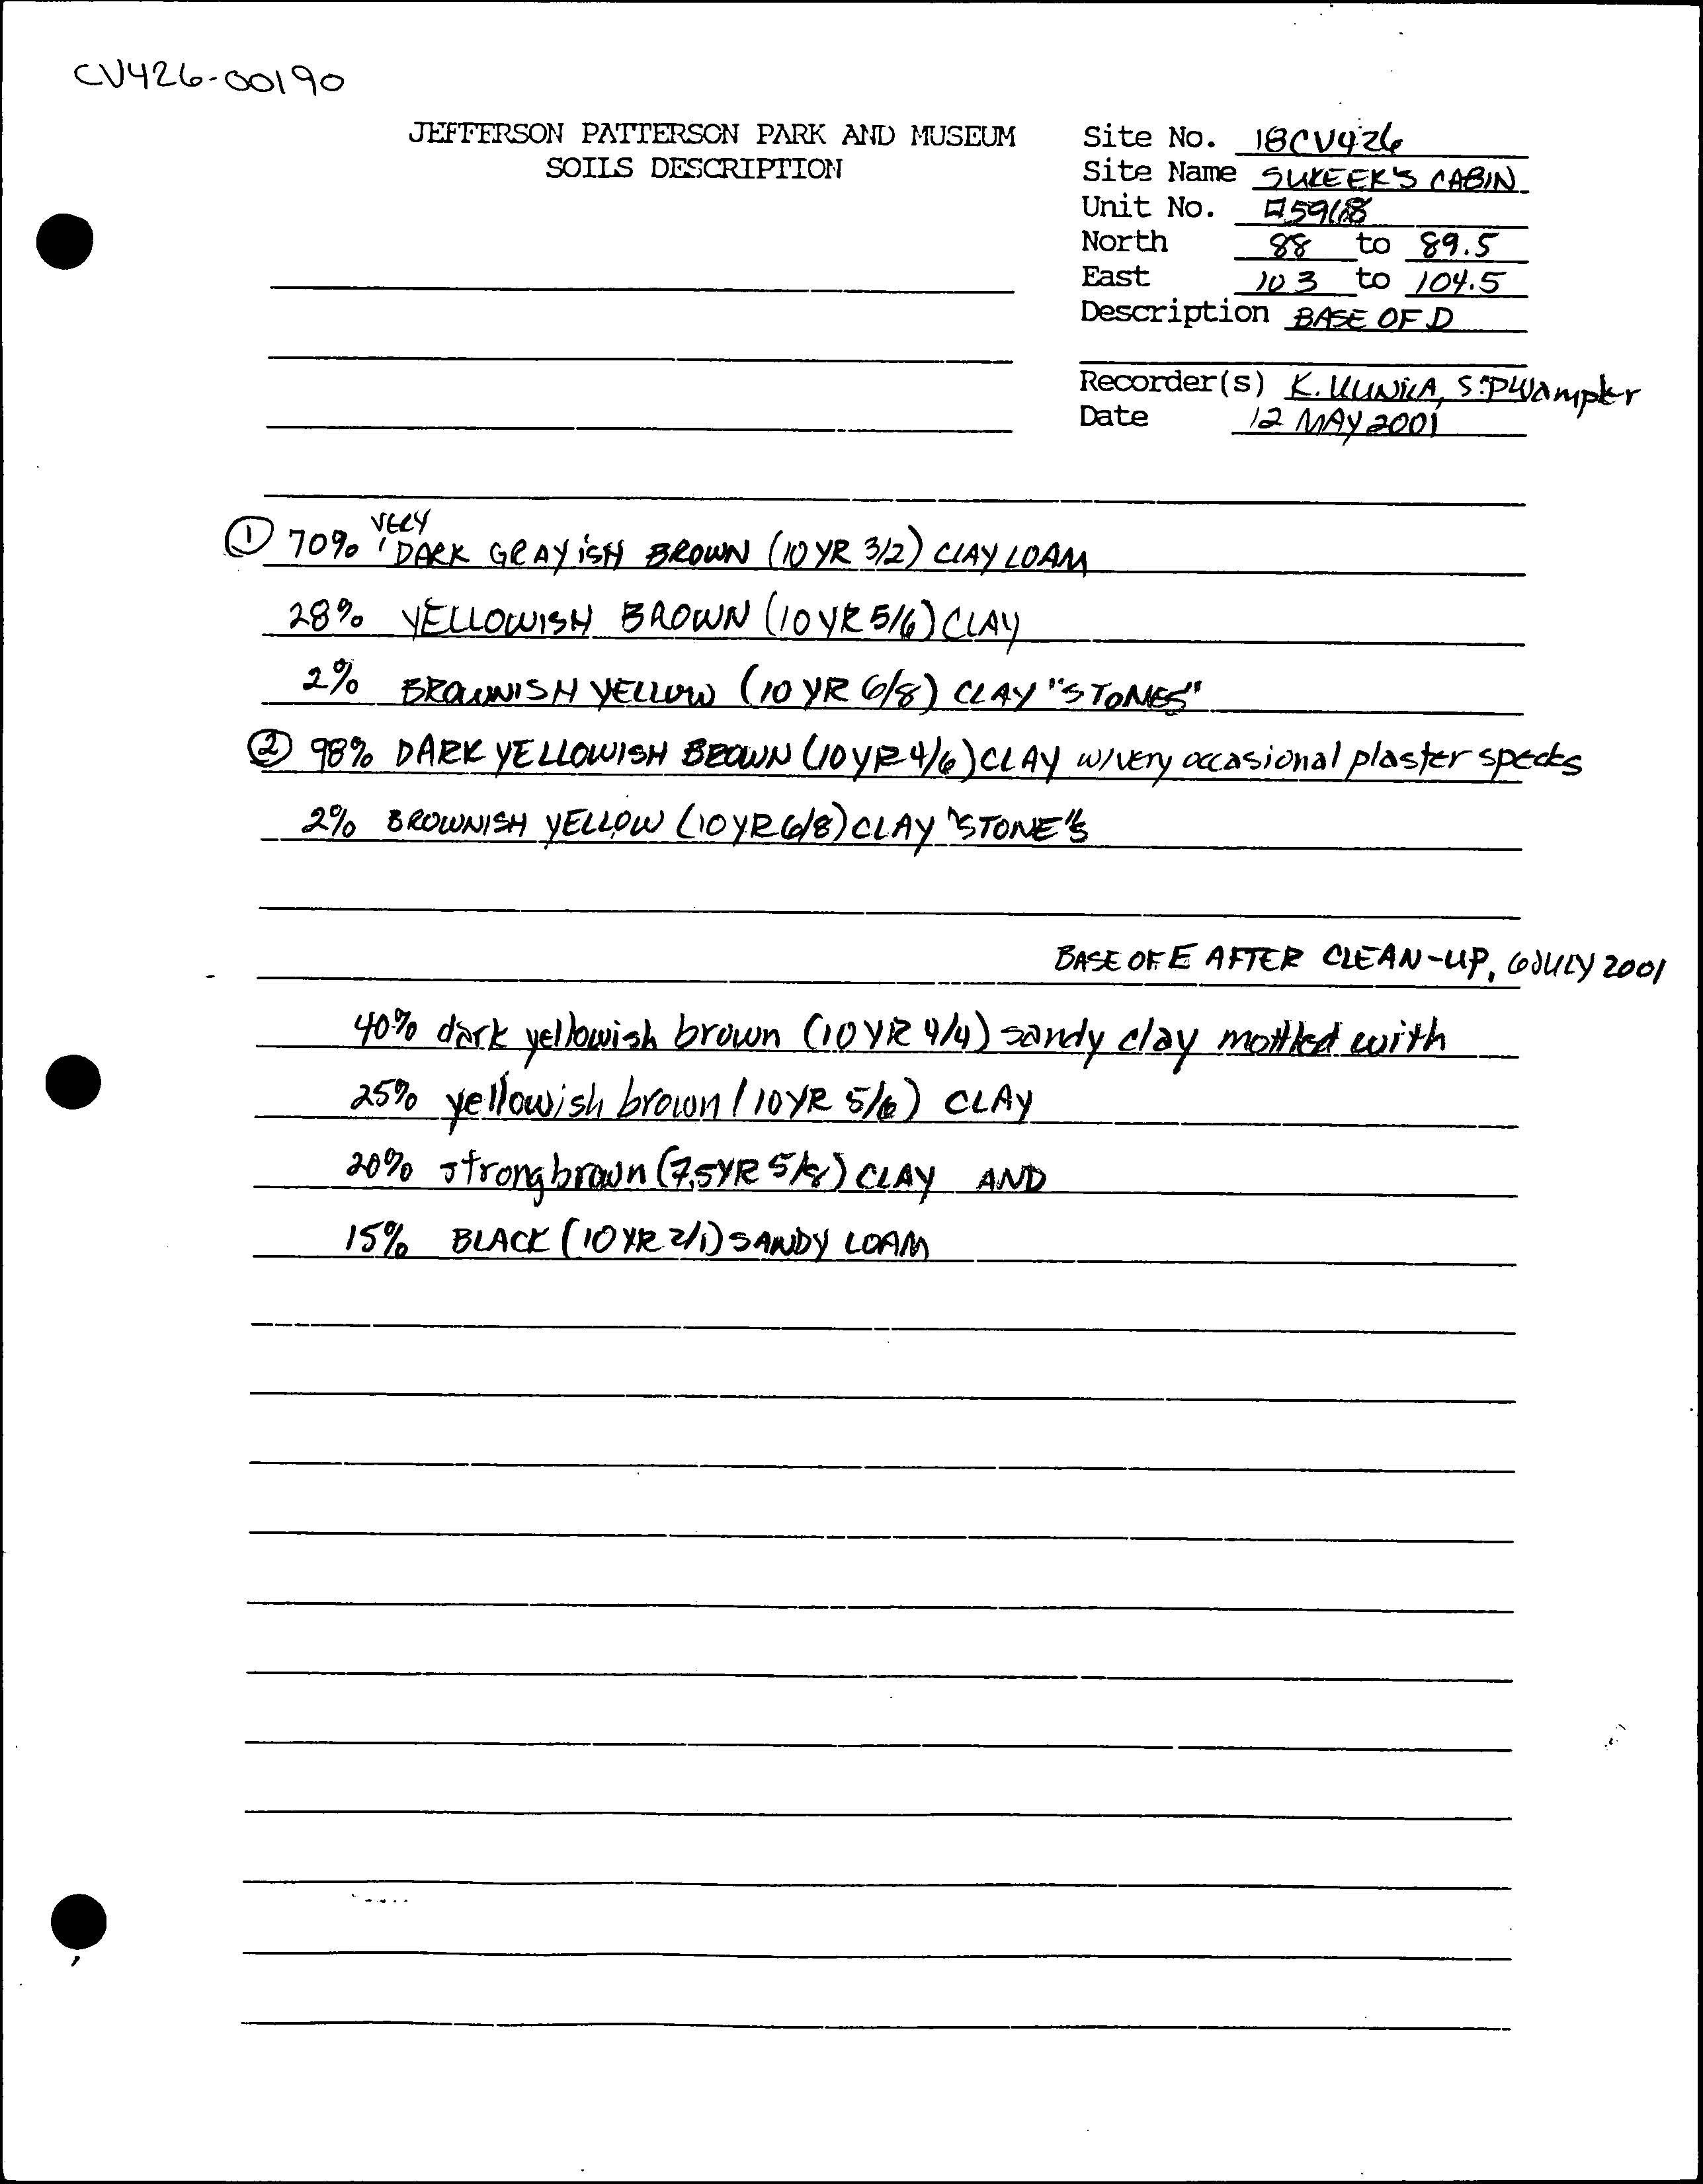 CV426-00190
JEFFERSON PATTERSON PARK AND MUSEUM
SOILS DESCRIPTION
Site No. 18CV426
Site Name SUKEEK'S CABIN
Unit No.
North 88 to 89.5
East 103 to 104.5
Description BASE OF D
Recorder(s) K. S. Wampler
Date 12 MAY 2001
① 70% VERY DARK GRAYISH BROWN (10 YR 3/2) CLAY LOAM
28% YELLOWISH BROWN (10 YR 5/6) CLAY
2% BROWNISH YELLOW (10 YR 6/8) CLAY "STONES"
② 98% DARK YELLOWISH BROWN (10YR 4/6) CLAY w/very occasional plaster specks
2% BROWNISH YELLOW (10YR 6/8) CLAY "STONE"S
BASE OF E AFTER CLEAN-UP, 6 JULY 2001
40% dark yellowish brown (10 YR 4/4) sandy clay mottled with
25% yellowish brown (10YR 5/6) CLAY
20% strong brown (7.5YR 5/8) CLAY AND
15% BLACK (10 YR 2/1) SANDY LOAM